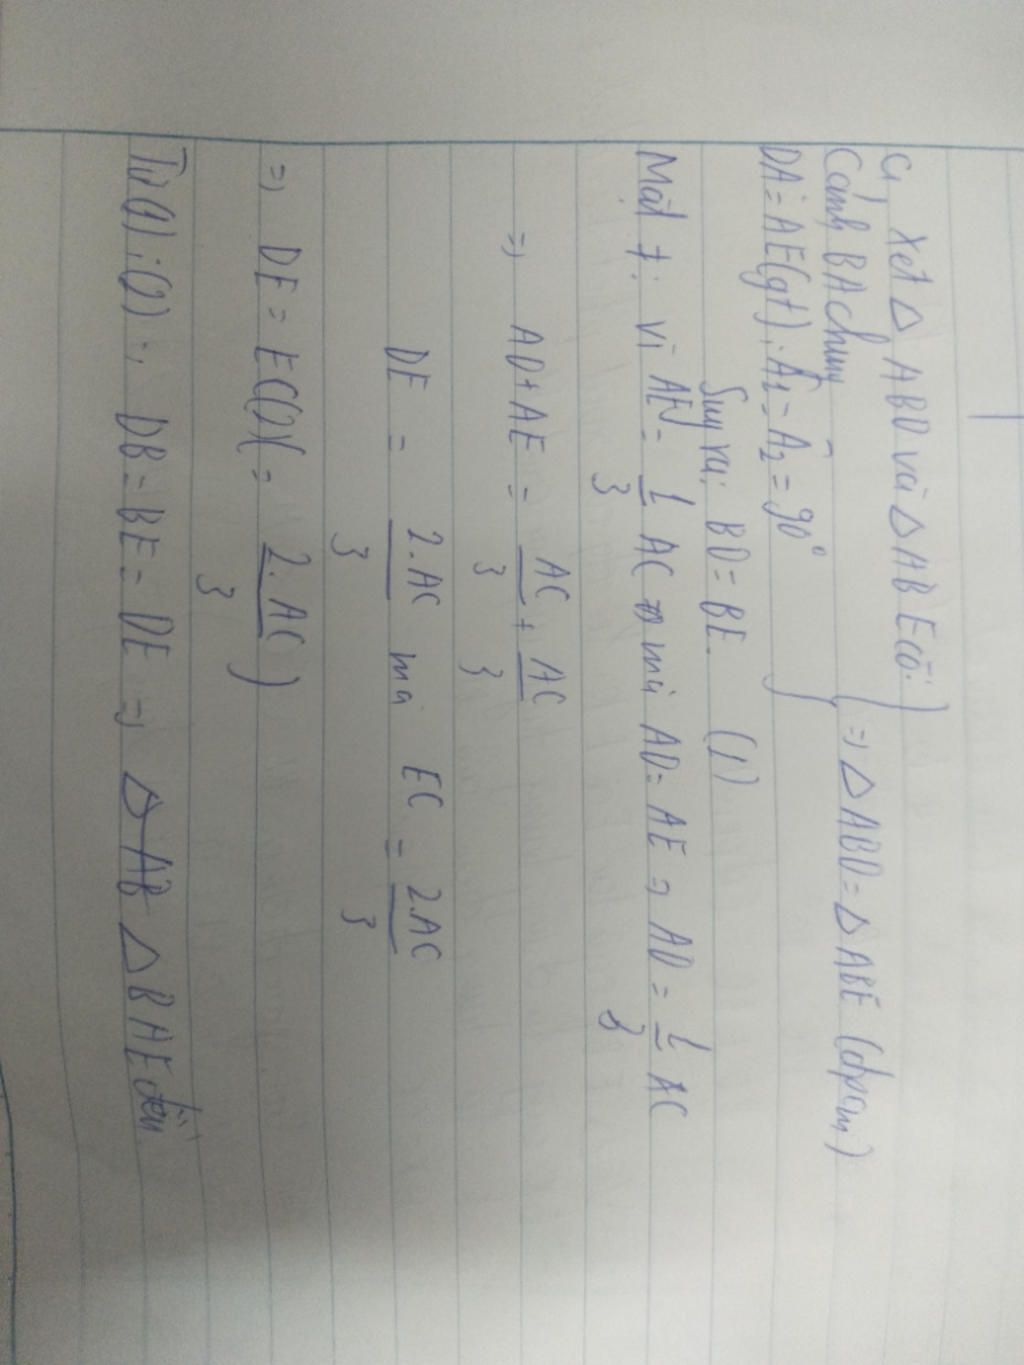 a, Xét △ ABD và △ ABE có:
Cạnh BA chung
DA = AE (gt). A1 = A2 = 90° => △ ABD = △ ABE (đpcm)
Suy ra: BD = BE. (1)
Mặt ≠: vì AE = 1/3 AC mà AD = AE => AD = 1/3 AC
=> AD + AE = AC/3 + AC/3
DE = 2.AC/3 mà EC = 2.AC/3
=> DE = EC (2) ( = 2.AC/3 )
Từ (1); (2) : DB = BE = DE => △ AB △ BAE đều